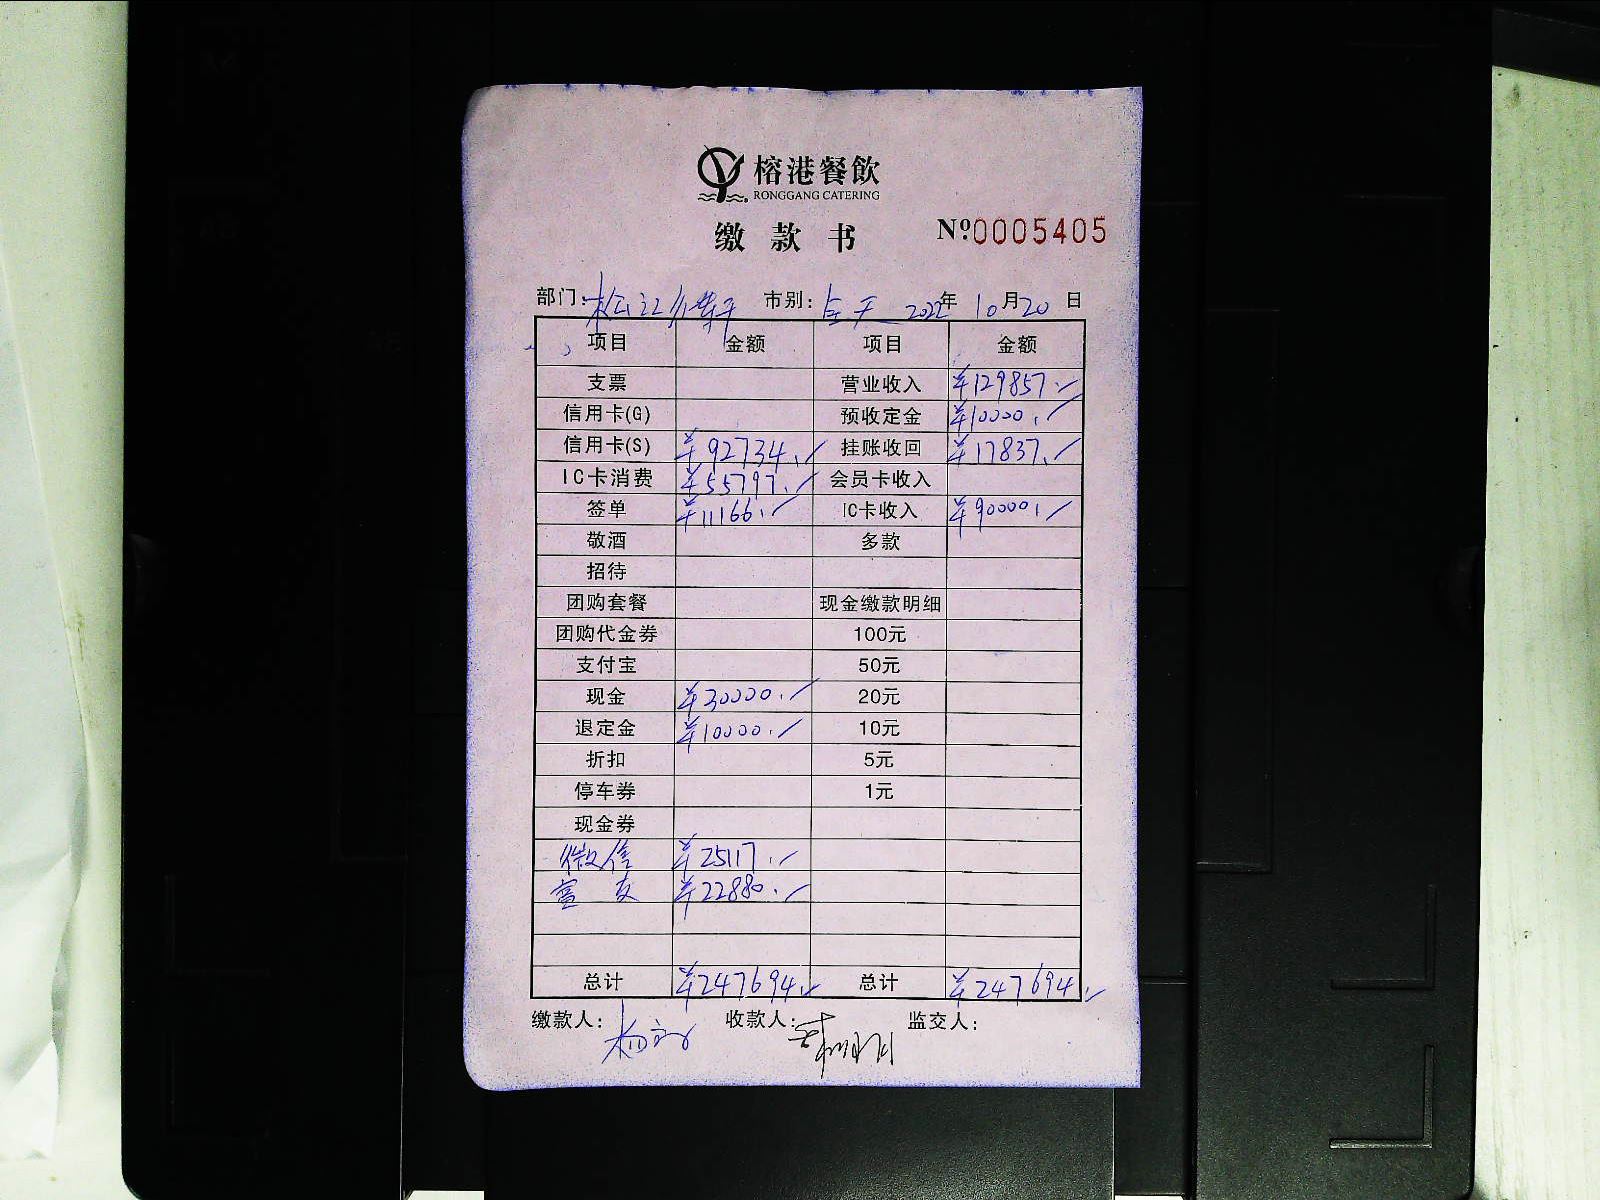 榕港餐飲
RONGGANG CATERING
缴款书 №0005405
部门: 松江 市别: 全天 2022年 10月20日
项目 金额 项目 金额
支票 营业收入 ¥129857.
信用卡(G) 预收定金 ¥10000.
信用卡(S) ¥92734. 挂账收回 ¥17837.
IC卡消费 ¥55797. 会员卡收入
签单 ¥11166. IC卡收入 ¥90000.
敬酒 多款
招待
团购套餐 现金缴款明细
团购代金券 100元
支付宝 50元
现金 ¥30000. 20元
退定金 ¥10000. 10元
折扣 5元
停车券 1元
现金券
微信 ¥25117.
富友 ¥22880.
总计 ¥247694. 总计 ¥247694.
缴款人: 收款人: 监交人: